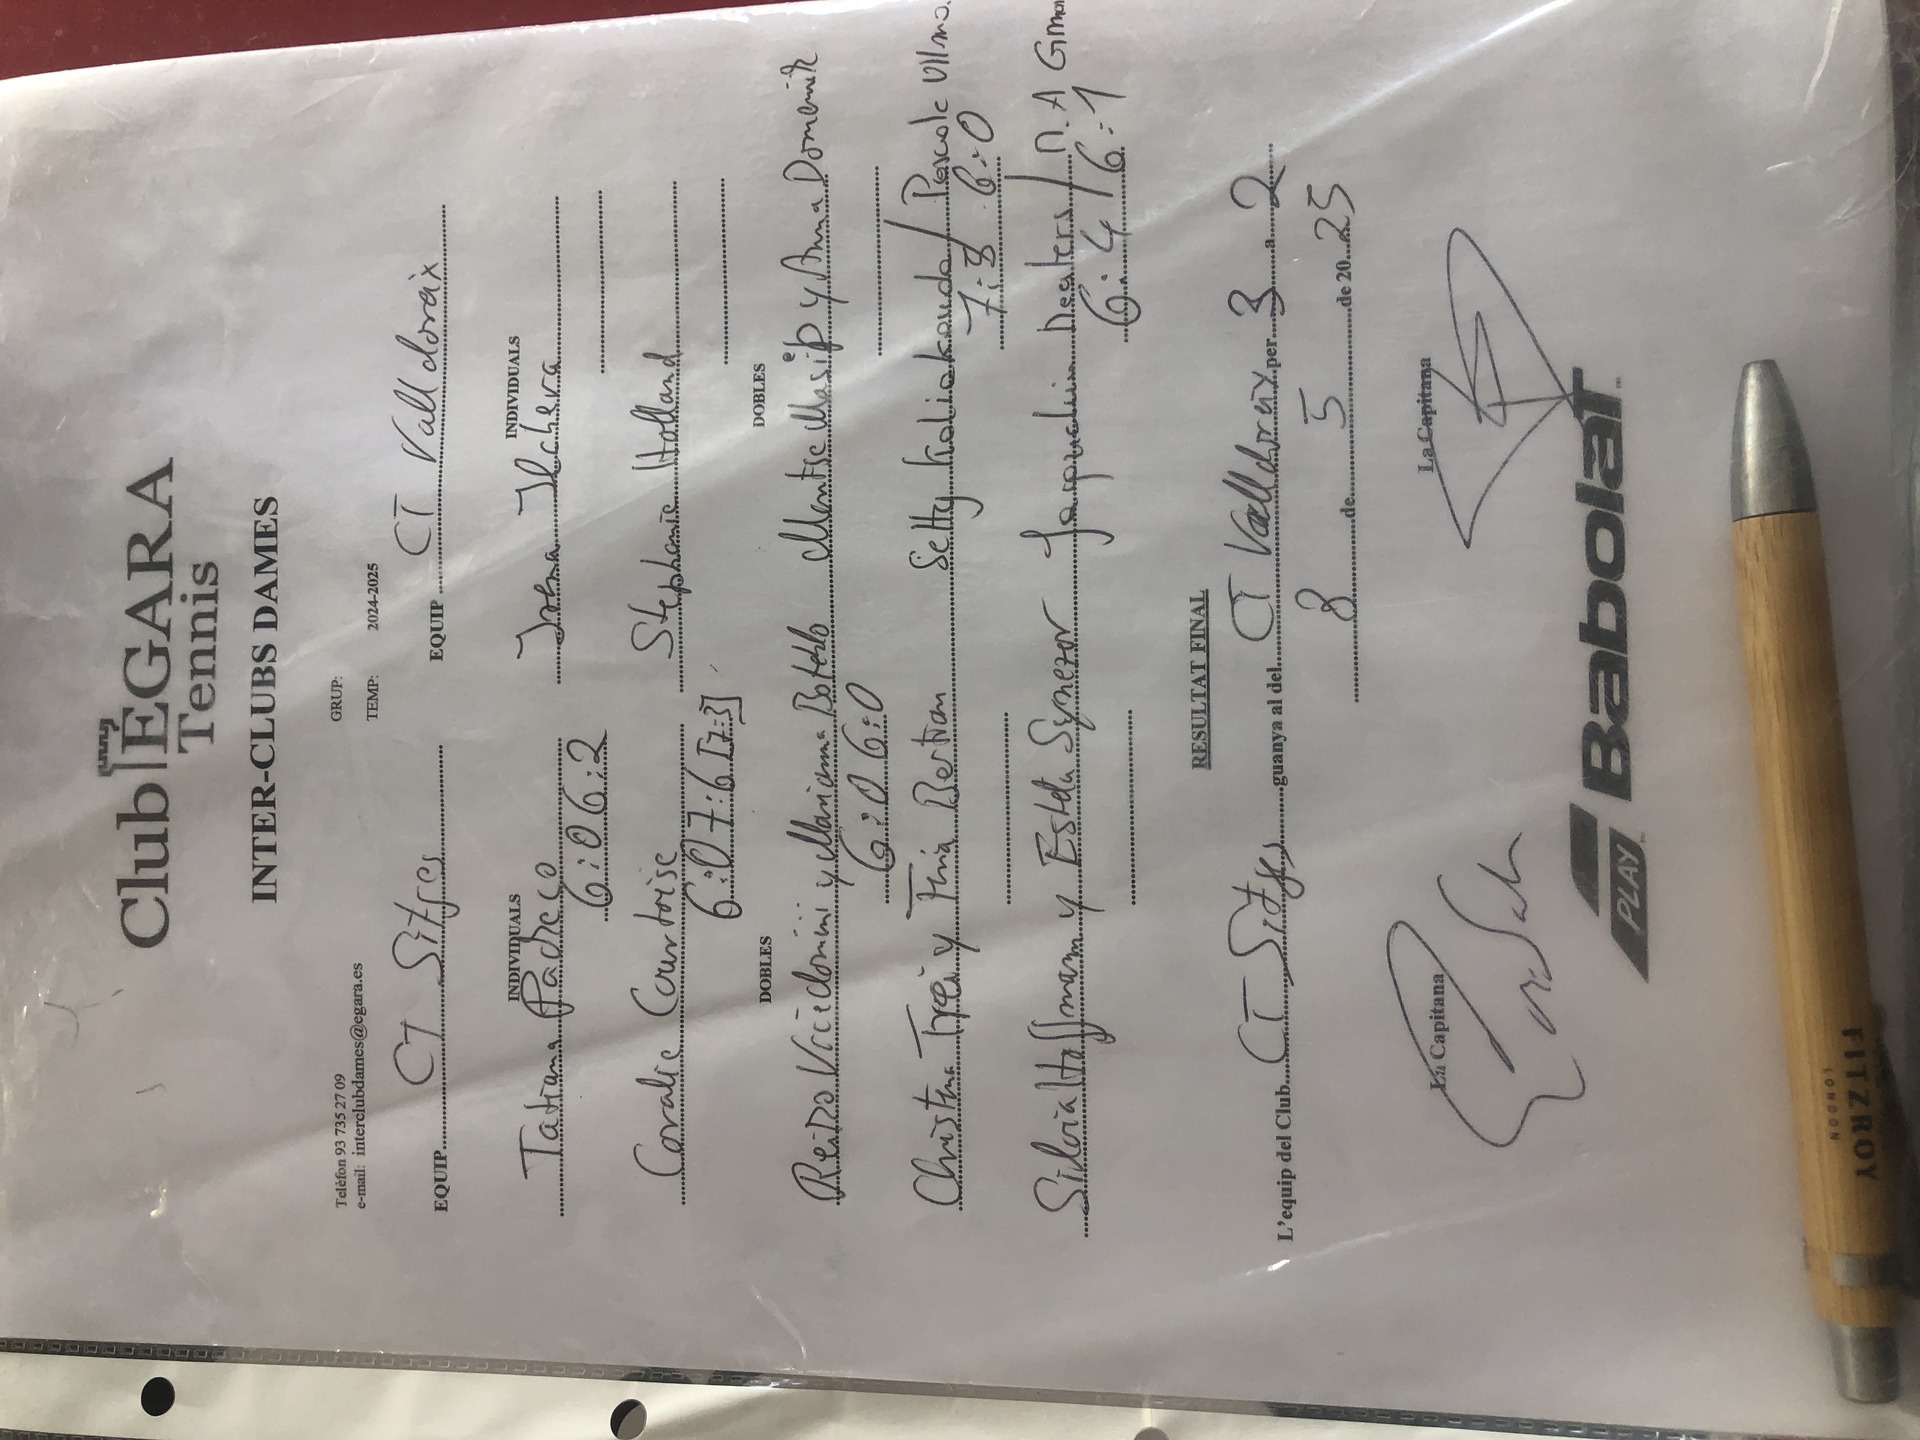 Club EGARA
Tennis
INTER-CLUBS DAMES
Telèfon 93 735 27 09 GRUP:
e-mail: interclubdames@egara.es TEMP: 2024-2025
EQUIP CT Sitges EQUIP CT Valldoreix
INDIVIDUALS INDIVIDUALS
Tatiana Pacheco Irena
6:0 6:2
Coralie Courtoise Stephanie Holland
6:0 7:6 [7:3]
DOBLES DOBLES
y Marianna Botelho Montse Masip y Anna Domenik
6:0 6:0
Christina y Bertran / Pascale
7:8 6:0
Silvia Hoffmann y Estela Jacqueline / M.A
6:4 6:1
RESULTAT FINAL
L'equip del Club CT Sitges guanya al del CT Valldoreix per 3 a 2
8 de 5 de 2025
La Capitana La Capitana
PLAY Babolat
FITZROY
LONDON